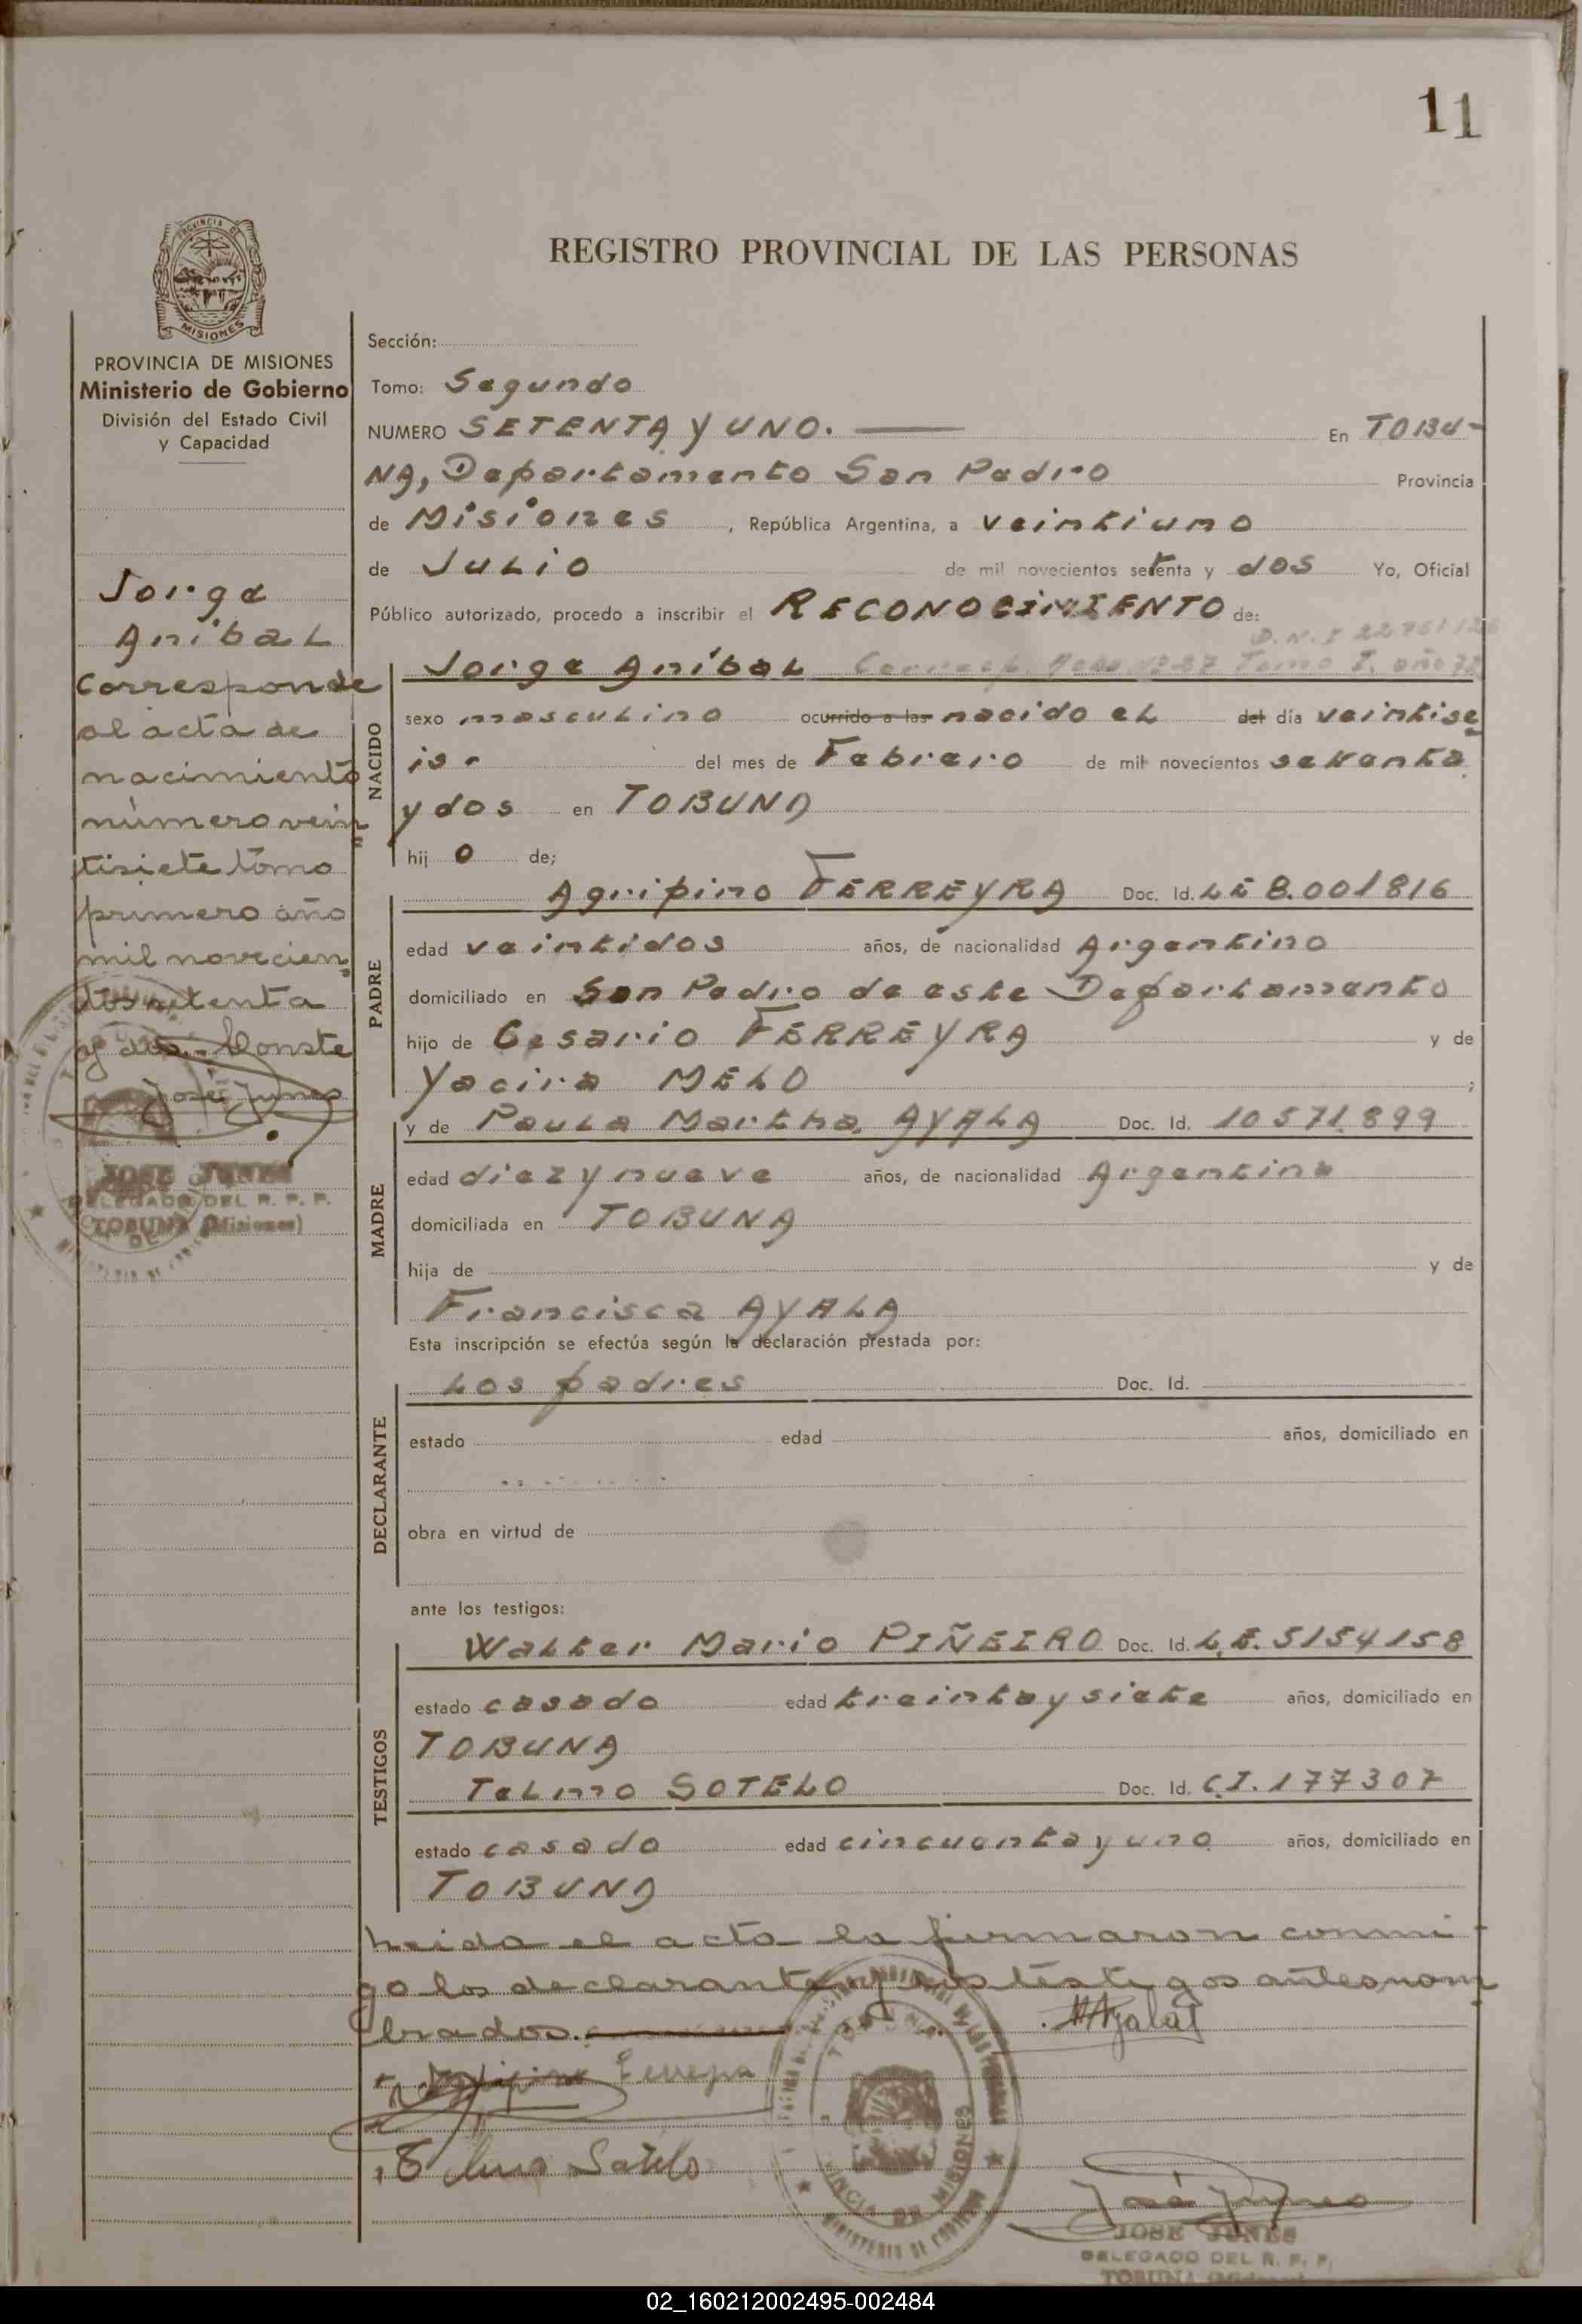 11
REGISTRO PROVINCIAL DE LAS PERSONAS
PROVINCIA DE MISIONES
Ministerio de Gobierno
División del Estado Civil
y Capacidad
Jorge
Aníbal
Corresponde
al acta de
nacimiento
número vein
tisiete tomo
primero año
mil novecien
tos setenta
y dos.- Conste
José Junes
JOSE JUNES
DELEGADO DEL R. P. P.
TOBUNA (Misiones)
Sección:
Tomo: Segundo
NUMERO SETENTA Y UNO. En TOBU-
NA, Departamento San Pedro Provincia
de Misiones, República Argentina, a veintiuno
de Julio de mil novecientos setenta y dos Yo, Oficial
Público autorizado, procedo a inscribir el RECONOCIMIENTO de:
D.N.I
Jorge Aníbal Acta Nº 27 Tomo I, año 72
NACIDO
sexo masculino ocurrido a las nacido el del día veintise
is- del mes de Febrero de mil novecientos setenta
y dos en TOBUNA
hij o de;
PADRE
Agripino FERREYRA Doc. Id. LE 8.001816
edad veintidos años, de nacionalidad Argentino
domiciliado en San Pedro de este Departamento
hijo de Cesario FERREYRA y de
Yacira MELO ;
MADRE
y de Paula Martha AYALA Doc. Id. 10571.899
edad diez y nueve años, de nacionalidad Argentina
domiciliada en TOBUNA
hija de y de
Francisca AYALA
Esta inscripción se efectúa según la declaración prestada por:
DECLARANTE
Los padres Doc. Id.
estado edad años, domiciliado en
obra en virtud de
ante los testigos:
TESTIGOS
Walter Mario PIÑEIRO Doc. Id. L.E. 5154158
estado casado edad treinta y siete años, domiciliado en
TOBUNA
Telmo SOTELO Doc. Id. C.I. 177307
estado casado edad cincuenta y uno años, domiciliado en
TOBUNA
Leida el acta la firmaron conmi-
go los declarantes y los testigos antesnom
brados.
Ferreyra
Sotelo
José Junes
JOSE JUNES
DELEGADO DEL R. P. P.
TOBUNA
02_160212002495-002484